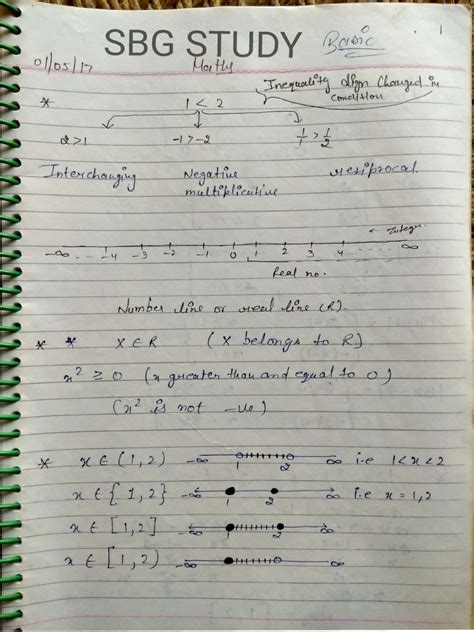 1
SBG STUDY Basic
01/05/17 Maths
Inequality sign Changed in
condition
* 1 < 2
2>1 -1>-2 1/1 > 1/2
Interchanging Negative resiprocal
multiplicative
← Integer
-∞ -4 -3 -2 -1 0 1 2 3 4 ∞
Real no.
Number line or real line (R).
* * X ∈ R (X belongs to R)
x² ≥ 0 (x greater than and equal to 0)
(x² is not -ve)
* x ∈ (1,2) -∞ 1 2 ∞ i.e 1<x<2
x ∈ {1,2} -∞ 1 2 ∞ i.e x = 1,2
x ∈ [1,2] -∞ 1 2 ∞
x ∈ [1,2) -∞ 1 2 ∞